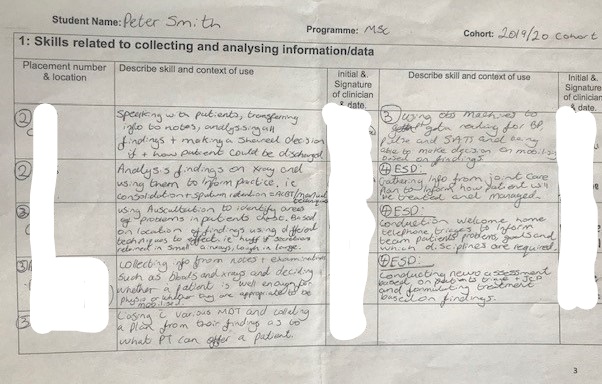 Student Name: Peter Smith
Programme: MSc
Cohort: 2019/20 Cohort
1: Skills related to collecting and analysing information/data
Placement number & location
Describe skill and context of use
Initial & Signature of clinician & date
Describe skill and context of use
Initial & Signature of clinician & date
2
Speaking with patients, transferring
info to notes, analysing all
findings + making a shared decision
if + how patient could be discharged
2
Analysis findings on xray and
using them to inform practice. i.e
consolidation + sputum retention = ACBT/manual
techniques
3
using Auscultation to identify areas
of problems in patients chest. Based
on location of findings using different
techniques to effect. ie huff if secretions
in small airways, cough in large.
3
Collecting info from notes + examination
such as bloods and xrays and deciding
whether a patient is well enough for
physio or whether they are appropriate to be
mobilised
3
various MDT and
a plan from their findings as to
what PT can offer a patient.
3 using obs machines to
get a reading for BP,
pulse and SATS and being
able to make decision on mobilising
based on findings.
4 ESD:
Gathering info from joint care
plan to inform how patient will
be treated and managed.
4 ESD:
Conduction welcome home
telephone triages to inform
team patients problems, goals and
which disciplines are required.
4 ESD:
Conducting neuro assessment
based on patients triage + JCP
and formulating treatment
based on findings.
3